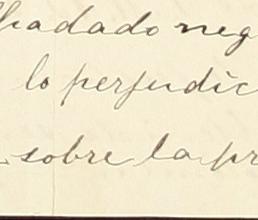 hadado neg
lo perjudic
sobre la pr